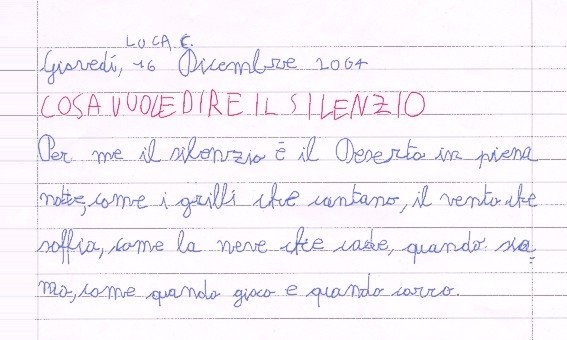 LUCA C.
Giovedì, 16 Dicembre 2004
COSA VUOLE DIRE IL SILENZIO
Per me il silenzio è il Deserto in piena
notte, come i grilli che cantano, il vento che
soffia, come la neve che cade, quando
mo, come quando gioco e quando corro.